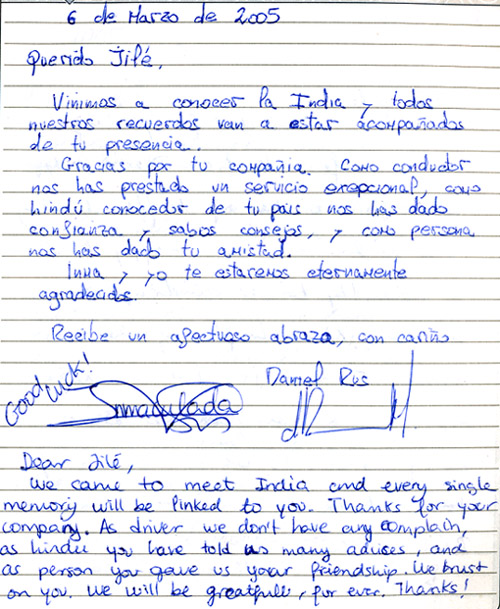 6 de Marzo de 2005
Querido Jilé,
Vinimos a conocer la India y todos
nuestros recuerdos van a estar acompañados
de tu presencia.
Gracias por tu compañia. Como conductor
nos has prestado un servicio excepcional, como
hindú conocedor de tu pais nos has dado
confianza y sabios consejos, y como persona
nos has dado tu amistad.
Inma y yo te estaremos eternamente
agradecidos.
Recibe un afectuoso abrazo, con cariño
Good Luck!
Daniel Rus
Inmaculada
Dear Jilé,
We came to meet India and every single
memory will be linked to you. Thanks for your
company. As driver we don't have any complain,
as hindu you have told us many advises, and
as person you gave us your friendship. We trust
on you. We will be greatfull, for ever. Thanks!